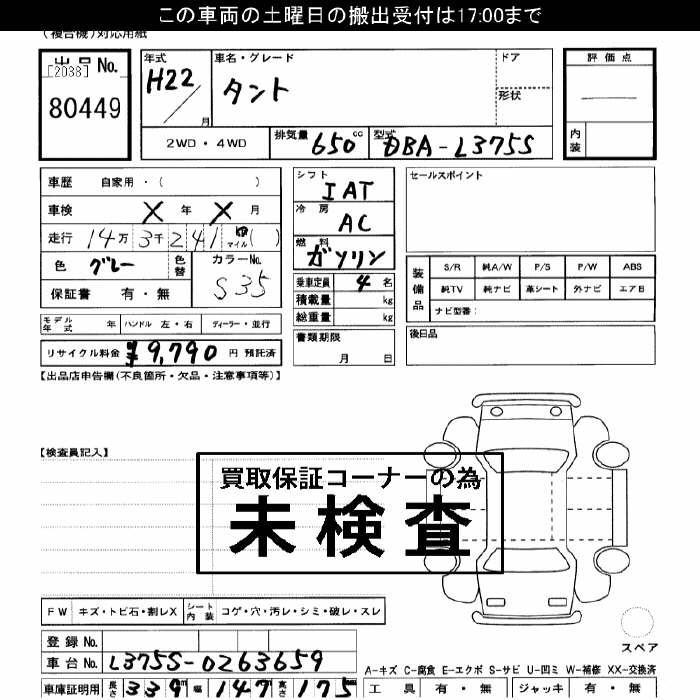 この車両の土曜日の搬出受付は17:00まで
(複合機)対応用紙
出品 No.
[2038]
80449
年式
H22 / 月
車名・グレード
タント
ドア
形状
2WD・4WD
排気量 650 cc
型式 DBA-L375S
評価点
—
内装
車歴 自家用・( )
車検 X 年 X 月
走行 14万 3千 241 km マイル ( )
色 グレー
色替
カラーNo.
S35
保証書 有・無
シフト
IAT
冷房
AC
燃料
ガソリン
乗車定員 4 名
積載量 kg
総重量 kg
セールスポイント
装備品
S/R 純A/W P/S P/W ABS
純TV 純ナビ 革シート 外ナビ エアB
ナビ型番:
モデル年式 年 ハンドル 左・右 ディーラー・並行
リサイクル料金 ¥9,790 円 預託済
書類期限
月 日
後日品
【出品店申告欄(不良箇所・欠品・注意事項等)】
【検査員記入】
買取保証コーナーの為
未検査
FW キズ・トビ石・割レX シート内装 コゲ・穴・汚レ・シミ・破レ・スレ
登録 No.
車台 No. L375S-0263659
車庫証明用 長さ 339 幅 147 高さ 175
スペア
A-キズ C-腐食 E-エクボ S-サビ U-凹ミ W-補修 XX-交換済
工具 有・無 ジャッキ 有・無